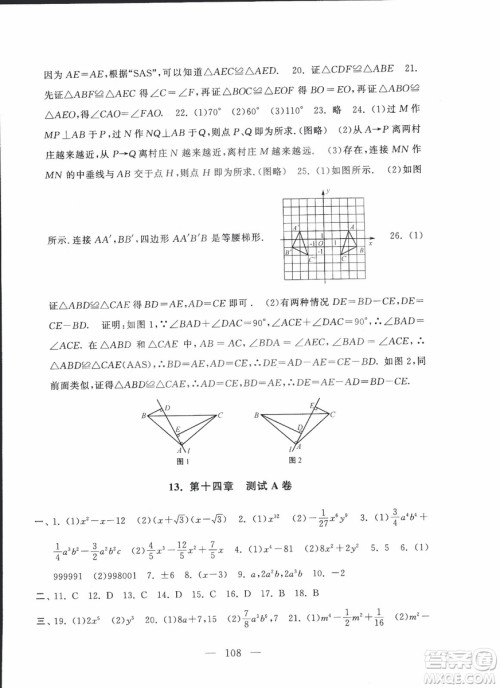 因为 AE=AE,根据“SAS”,可以知道△AEC≌△AED. 20. 证△CDF≌△ABE 21.
先证△AEC≌△FDB 得∠C=∠F,再证△BOC≌△EOF 得 OB=OE,再证△ABO≌
△MOE,得∠CAO=∠FMO 22. (1)70° (2)60° (3)110° 23. 略 24. (1)过 M 作
MP⊥AB 于 P,过 N 作 NQ⊥AB 于 Q,则点 P、Q 即为所求.(图略) (2)从 A→P 离两村
庄越来越近,从 P→Q 离村庄 N 越来越近,离村庄 M 越来越远. (3)存在,连接 MN 作
MN 的中垂线与 AB 交于点 H,则点 H 即为所求.(图略) 25. (1)如图所示. (2)如图
所示.连接 AA′,BB′,四边形 AA′B′B 是等腰梯形.
y
1
-1
O
1
-1
x
26. (1)
证△ABD≌△CAE 得 AD=CE,BD=AE (2)有两种情况 DE=BD-CE 或 DE=
CE-BD. 证明:如图 1,∵∠BAD+∠DAC=90°,∠BAD+∠ABD=90°,∴∠DAC
=∠ABD. 又∵∠BDA=∠AEC=90°,∠ABD=∠DAC,∠BDA=∠AEC,AB=AC,
∴△ABD≌△CAE(AAS),∴AD=CE,AE=BD,∴DE=BD-CE. 如图 2,同
前面类似,△ABD≌△CAE,得 AD=CE,AE=BD,∴DE=CE-BD.
B D C E A l
图 1
B C D E A l
图 2
13. 第十四章 测试 A 卷
一、1. (1)x²-x-12 (2)(x+√3)(x-√3) 2. (1)x¹² (2)-1/27 x⁶y³ 3. (1)3/4 a⁴b⁴+
1/4 a³b²-1/2 a²b²c (2)-3/5 x³-7/15 x²+7/5 x 4. (1)-2 (2)x 5. (1)
999991 (2)998001 6. 4x² 7. -6(x-3) 8. a,2a²b,2a²b 9. 5 10. -2
二、11. C 12. D 13. C 14. D 15. A 16. D 17. B 18. B
三、19. (1)2x⁵ (2)-y² 20. (1)8a+7,15 (2)7/8 a²b,-7/16 21. (1)m⁴-1/2 m²+1/16
108